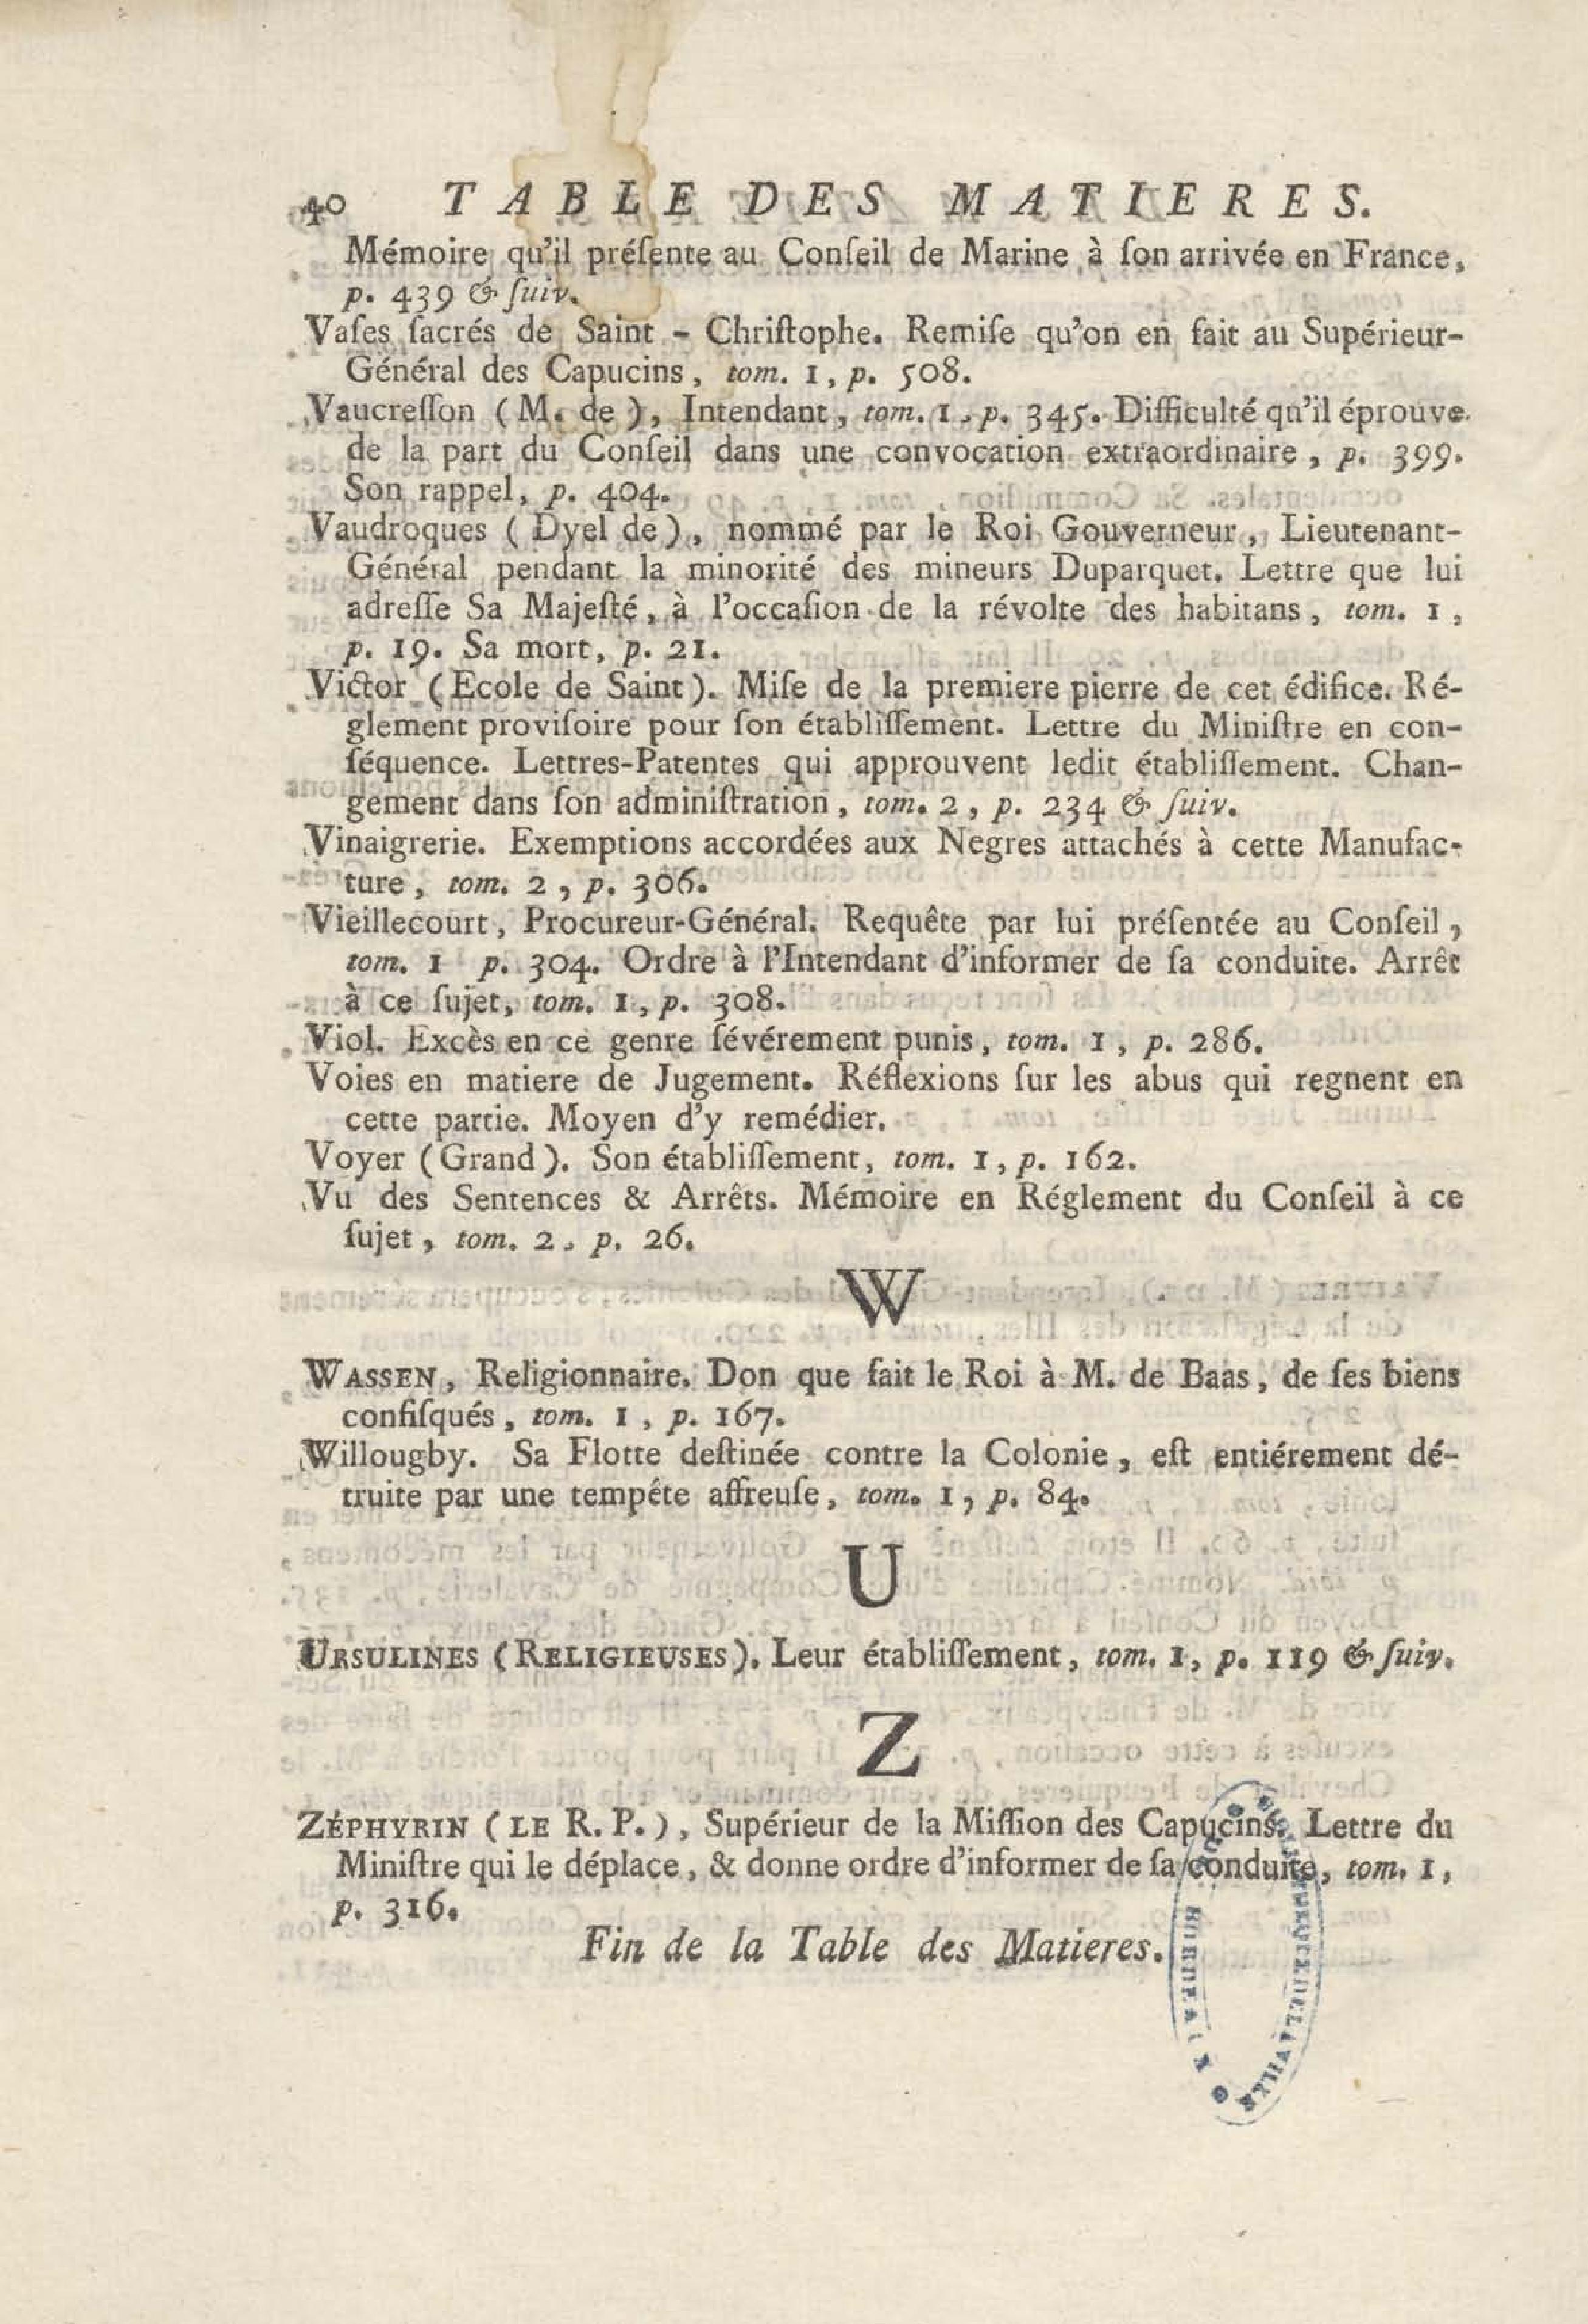 40 TABLE DES MATIERES.
Mémoire qu'il préſente au Conſeil de Marine à ſon arrivée en France,
p. 439 & ſuiv.
Vaſes ſacrés de Saint - Chriſtophe. Remiſe qu'on en fait au Supérieur-
Général des Capucins, tom. 1, p. 508.
Vaucreſſon (M. de), Intendant, tom. 1, p. 345. Difficulté qu'il éprouve
de la part du Conſeil dans une convocation extraordinaire, p. 399.
Son rappel, p. 404.
Vaudroques (Dyel de), nommé par le Roi Gouverneur, Lieutenant-
Général pendant la minorité des mineurs Duparquet. Lettre que lui
adreſſe Sa Majeſté, à l'occaſion de la révolte des habitans, tom. 1,
p. 19. Sa mort, p. 21.
Victor (Ecole de Saint). Miſe de la premiere pierre de cet édifice. Ré-
glement proviſoire pour ſon établiſſement. Lettre du Miniſtre en con-
ſéquence. Lettres-Patentes qui approuvent ledit établiſſement. Chan-
gement dans ſon adminiſtration, tom. 2, p. 234 & ſuiv.
Vinaigrerie. Exemptions accordées aux Negres attachés à cette Manufac-
ture, tom. 2, p. 306.
Vieillecourt, Procureur-Général. Requête par lui préſentée au Conſeil,
tom. 1 p. 304. Ordre à l'Intendant d'informer de ſa conduite. Arrêt
à ce ſujet, tom. 1, p. 308.
Viol. Excès en ce genre ſévérement punis, tom. 1, p. 286.
Voies en matiere de Jugement. Réflexions ſur les abus qui regnent en
cette partie. Moyen d'y remédier.
Voyer (Grand). Son établiſſement, tom. 1, p. 162.
Vu des Sentences & Arrêts. Mémoire en Réglement du Conſeil à ce
ſujet, tom. 2, p. 26.
W
WASSEN, Religionnaire. Don que fait le Roi à M. de Baas, de ſes biens
confiſqués, tom. 1, p. 167.
Willougby. Sa Flotte deſtinée contre la Colonie, eſt entiérement dé-
truite par une tempéte affreuſe, tom. 1, p. 84.
U
URSULINES (RELIGIEUSES). Leur établiſſement, tom. 1, p. 119 & ſuiv.
Z
ZÉPHYRIN (LE R. P.), Supérieur de la Miſſion des Capucins. Lettre du
Miniſtre qui le déplace, & donne ordre d'informer de ſa conduite, tom. 1,
p. 316.
Fin de la Table des Matieres.